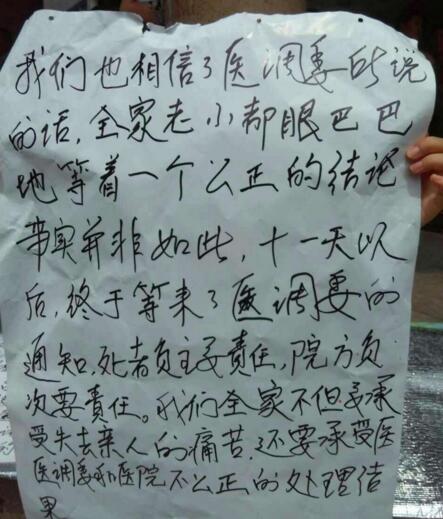 我们也相信了医调委所说
的话,全家老小都眼巴巴
地等着一个公正的结论
事实并非如此,十一天以
后,终于等来了医调委的
通知,死者负主要责任,院方负
次要责任。我们全家不但要承
受失去亲人的痛苦,还要承受医
医调委和医院不公正的处理结
果